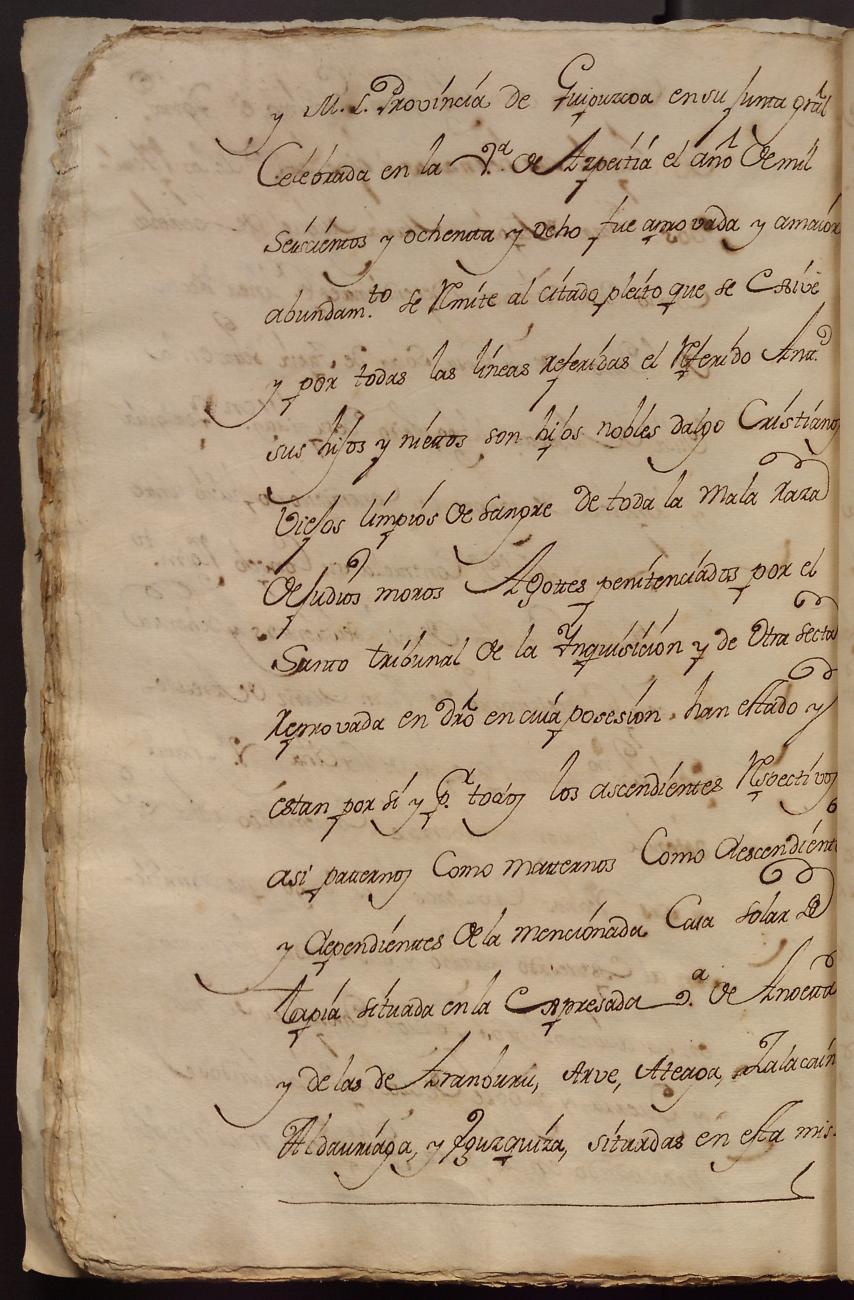 y M. L. Provincia de Guipuzcoa en su Junta gral
Celebrada en la V.ª de Azpeitia el año de mil
Seiscientos y ochenta y ocho fue aprovada y amaior
abundam.to se Rmite al citado pleito que se Esive
y por todas las lineas Referidas el Referido Anr.o
sus hijos y nietos son hijos nobles dalgo Cristianos
Viejos limpios de Sangre de toda la Mala Raza
de Judios moros Agottes penitenciados por el
Santo tribunal de la Ynquisicion y de otra Secta
Reprovada en dro en cuia posesion han estado y
estan por si y p.r todos los ascendientes Rspectivos
asi paternos Como maternos Como descendient
y dependientes de la mencionada Casa Solar de
Tapia situada en la Expresada V.ª de Anoeta
y de las de Aranburu, Arve, Ateaga, Zalacain
Aldauriaga, y Yguzquiza, situadas en esta mis-